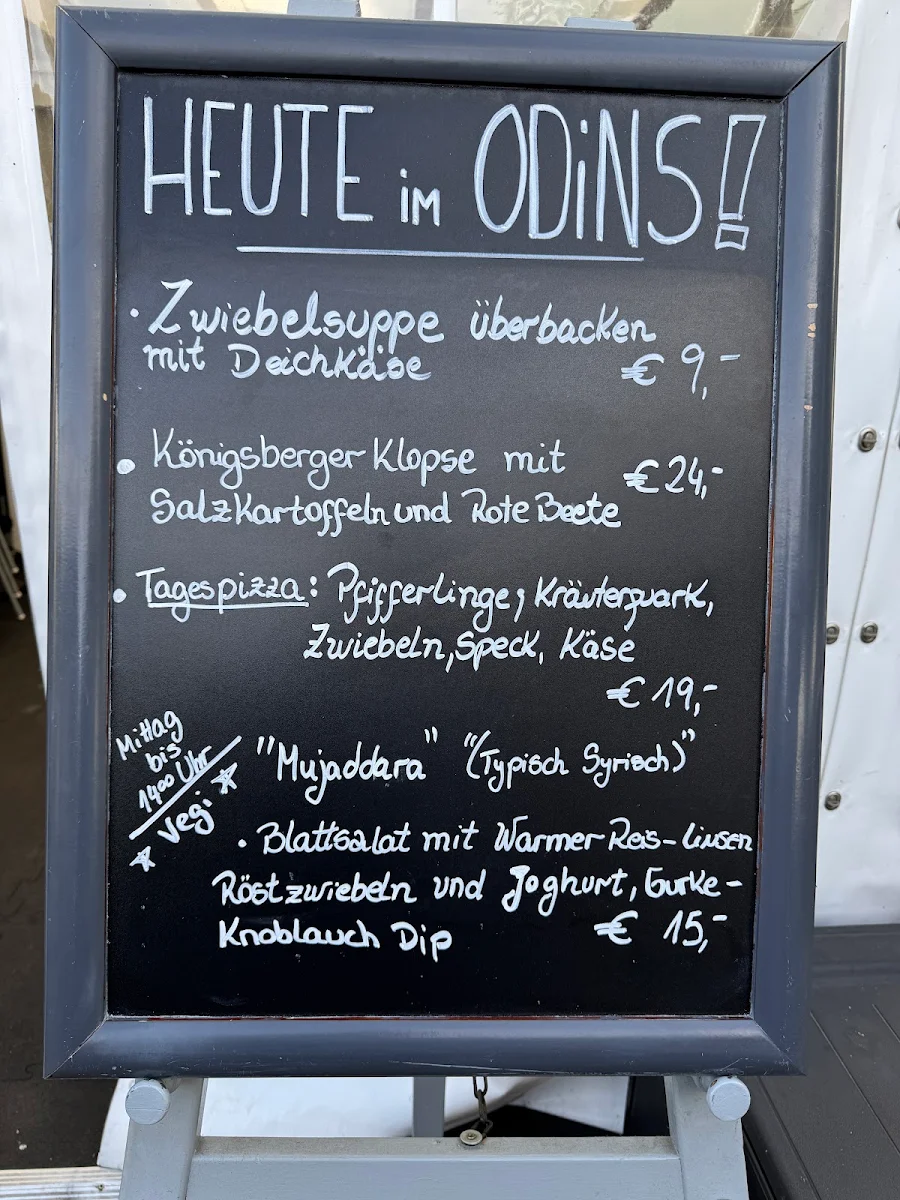 HEUTE im ODiNS!
· Zwiebelsuppe überbacken
mit Deichkäse € 9,-
• Königsberger Klopse mit € 24,-
Salzkartoffeln und Rote Beete
• Tagespizza: Pfifferlinge, Kräuterquark,
Zwiebeln, Speck, Käse
€ 19,-
Mittag
bis
14⁰⁰ Uhr
☆ Vegi ☆
"Mujaddara" "(Typisch Syrisch)"
· Blattsalat mit Warmer Reis-Linsen
Röstzwiebeln und Joghurt, Gurke-
Knoblauch Dip € 15,-